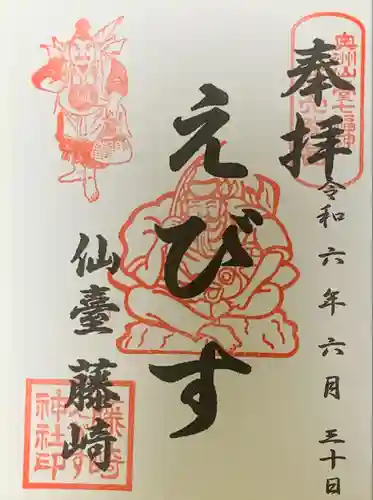 奉拝
令和六年六月三十日
えびす
仙臺 藤崎
奥州仙臺七福神
藤崎
えびす
神社印